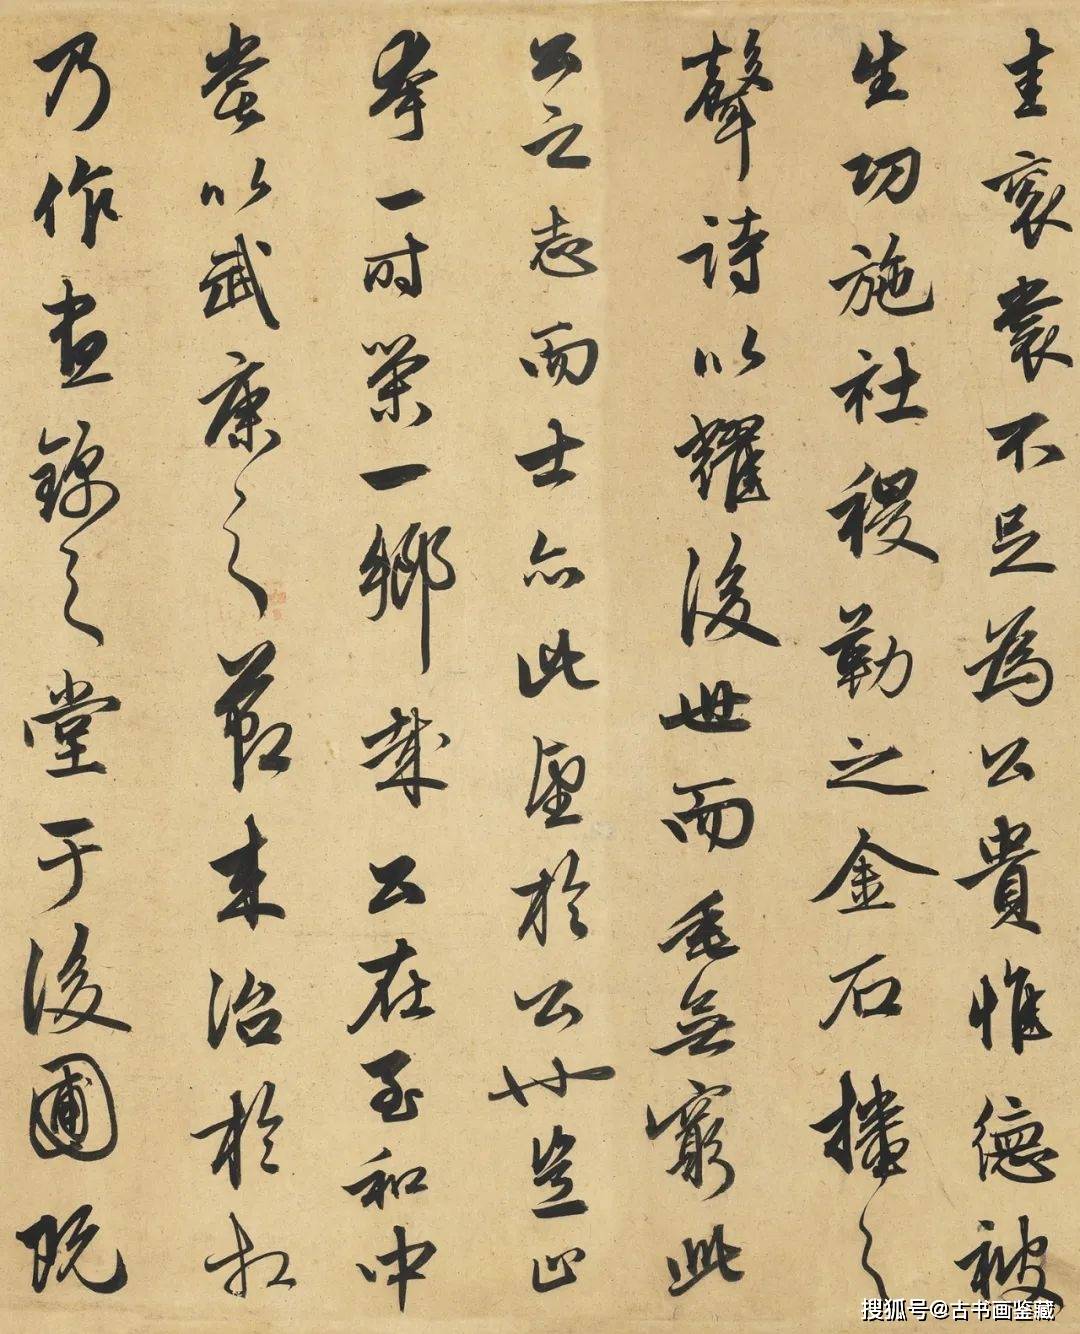 圭衮裳不足為公貴惟德被
生功施社稷勒之金石播之
聲詩以耀後世而垂無窮此
公之志而士亦此望於公也豈止
夸一時榮一鄉哉公在至和中
嘗以武康之節来治於相
乃作晝錦之堂于後圃既
搜狐号@古书画鉴藏